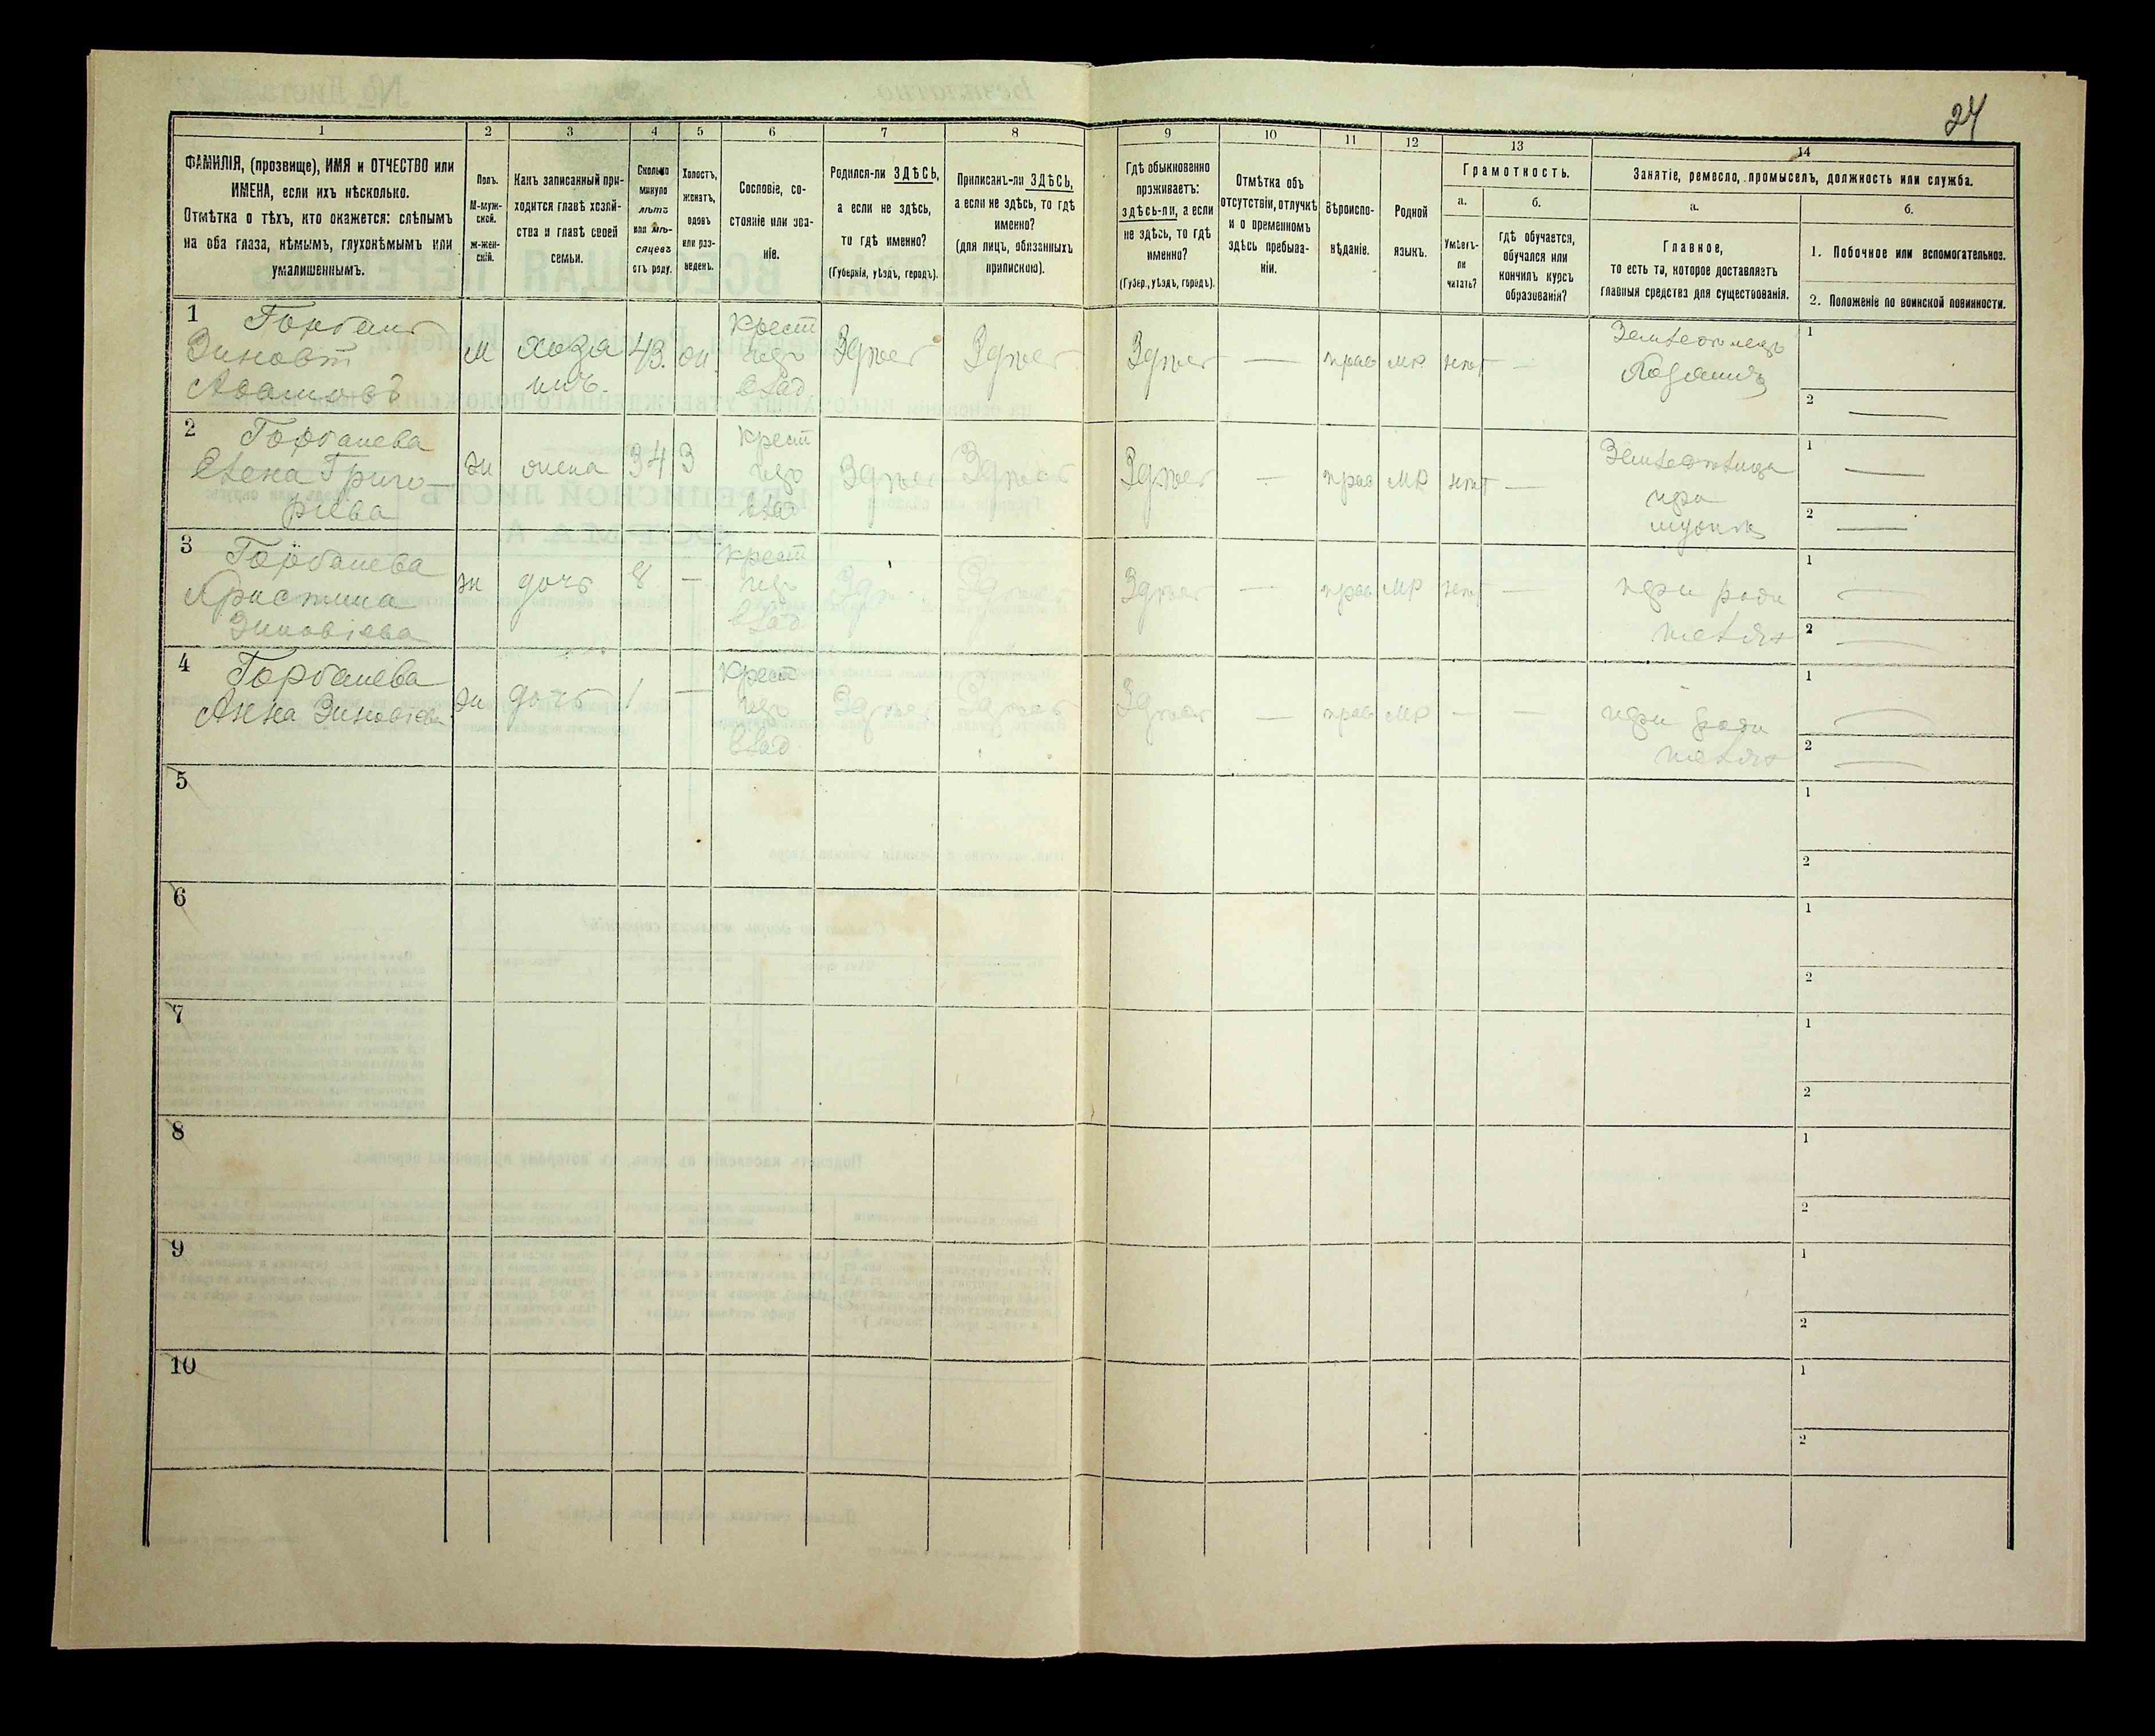 24
1
2
3
4
5
6
7
8
9
10
11
12
13
14
ФАМИЛІЯ, (прозвище), ИМЯ и ОТЧЕСТВО или
ИМЕНА, если ихъ нѣсколько.
Отмѣтка о тѣхъ, кто окажется: слѣпымъ
на оба глаза, нѣмымъ, глухонѣмымъ или
умалишеннымъ.
Полъ.
М-муж-
ской.
ж-жен-
скій.
Какъ записанный при-
ходится главѣ хозяй-
ства и главѣ своей
семьи.
Сколько
минуло
лѣтъ
или мѣ-
сяцевъ
отъ роду.
Холостъ,
женатъ,
вдовъ
или раз-
веденъ.
Сословіе, со-
стояніе или зва-
ніе.
Родился-ли ЗДѢСЬ,
а если не здѣсь,
то гдѣ именно?
(Губернія, уѣздъ, городъ).
Приписанъ-ли ЗДѢСЬ,
а если не здѣсь, то гдѣ
именно?
(для лицъ, обязанныхъ
припискою).
Гдѣ обыкновенно
проживаетъ:
здѣсь-ли, а если
не здѣсь, то гдѣ
именно?
(Губер., уѣздъ, городъ).
Отмѣтка объ
отсутствіи, отлучкѣ
и о временномъ
здѣсь пребыва-
ніи.
Вѣроиспо-
вѣданіе.
Родной
языкъ.
Грамотность.
а.
Умѣетъ-
ли
читать?
б.
гдѣ обучается,
обучался или
кончилъ курсъ
образованія?
Занятіе, ремесло, промыселъ, должность или служба.
а.
Главное,
то есть то, которое доставляетъ
главныя средства для существованія.
б.
1. Побочное или вспомогательное.
2. Положеніе по воинской повинности.
1 Горбань
Зиновій
Адамовъ
м
хозя
инъ.
43.
ж.
крест
изъ
влад
Здѣсь
Здѣсь
Здѣсь
—
прав
мр
нѣт
—
Земледелецъ
Хозяинъ
1
2 —
2 Горбанева
Елена Григо-
рьева
ж
жена
34
З
крест
изъ
влад
Здѣсь
Здѣсь
Здѣсь
—
прав
мр
нѣт
—
при
мужѣ
1 —
2 —
3 Горбанева
Христина
Зиновіева
ж
дочь
8
—
крест
изъ
влад
Здѣсь
Здѣсь
Здѣсь
—
прав
мр
нѣт
—
при роди
теляхъ
1 —
2 —
4 Горбанева
Анна Зиновіева
ж
дочь
1
—
крест
изъ
влад
Здѣсь
Здѣсь
Здѣсь
—
прав
мр
—
—
при роди
теляхъ
1 —
2 —
5
1
2
6
1
2
7
1
2
8
1
2
9
1
2
10
1
2